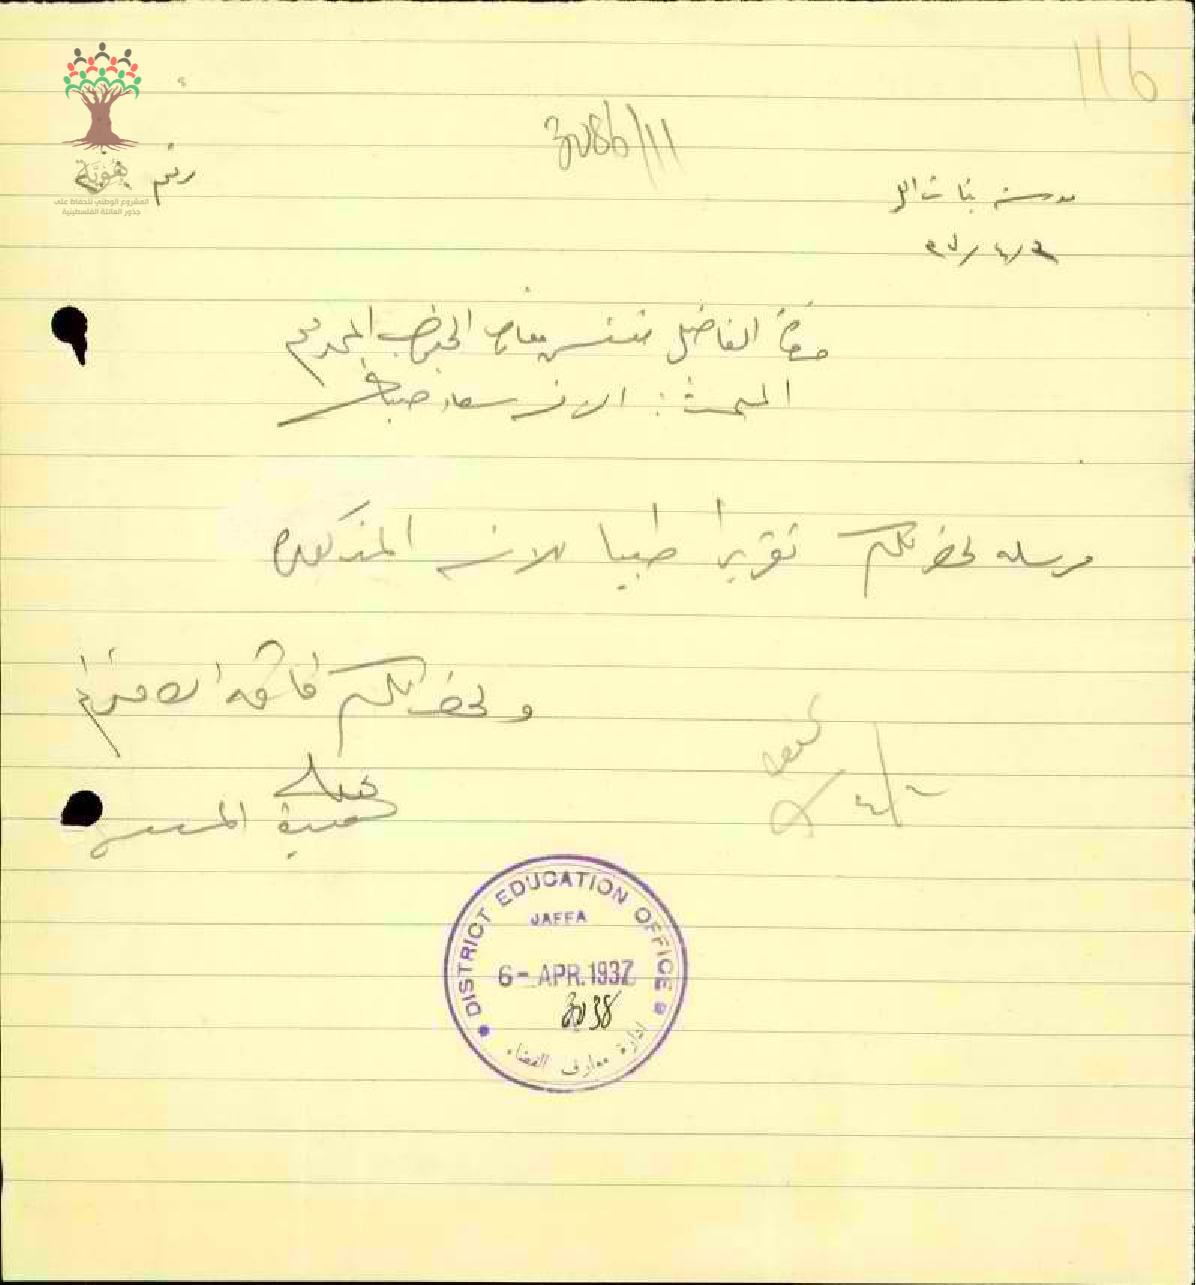 116
3086/11
هوية
المشروع الوطني للحفاظ على
جذور العائلة الفلسطينية
رقم
مدرسة بنات اللد
حضرة الفاضل مفتش معارف الجنوب المحترم
المبحث : الآنسة سعاد صباغ
مرسله لحضرتكم تقريرا طبيا للآنسه المذكوره
ولحضرتكم فائق الاحترام
DISTRICT EDUCATION OFFICE
JAFFA
6- APR. 1937
3038
ادارة معارف القضاء